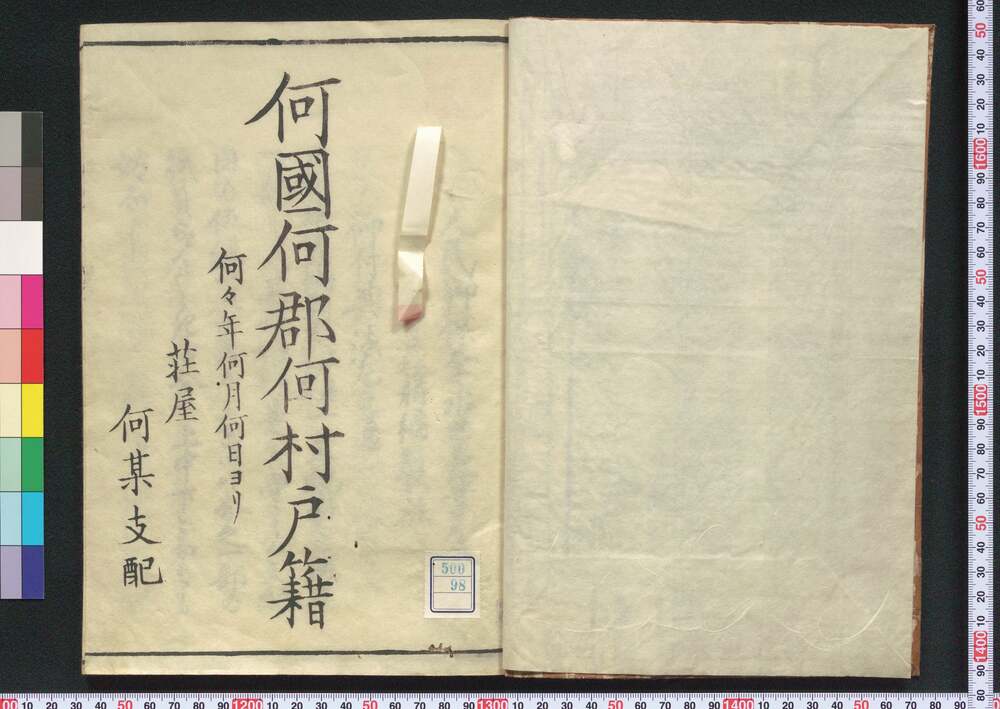 何國何郡何村戸籍
何々年何月何日ヨリ
荘屋
何某支配
500
98